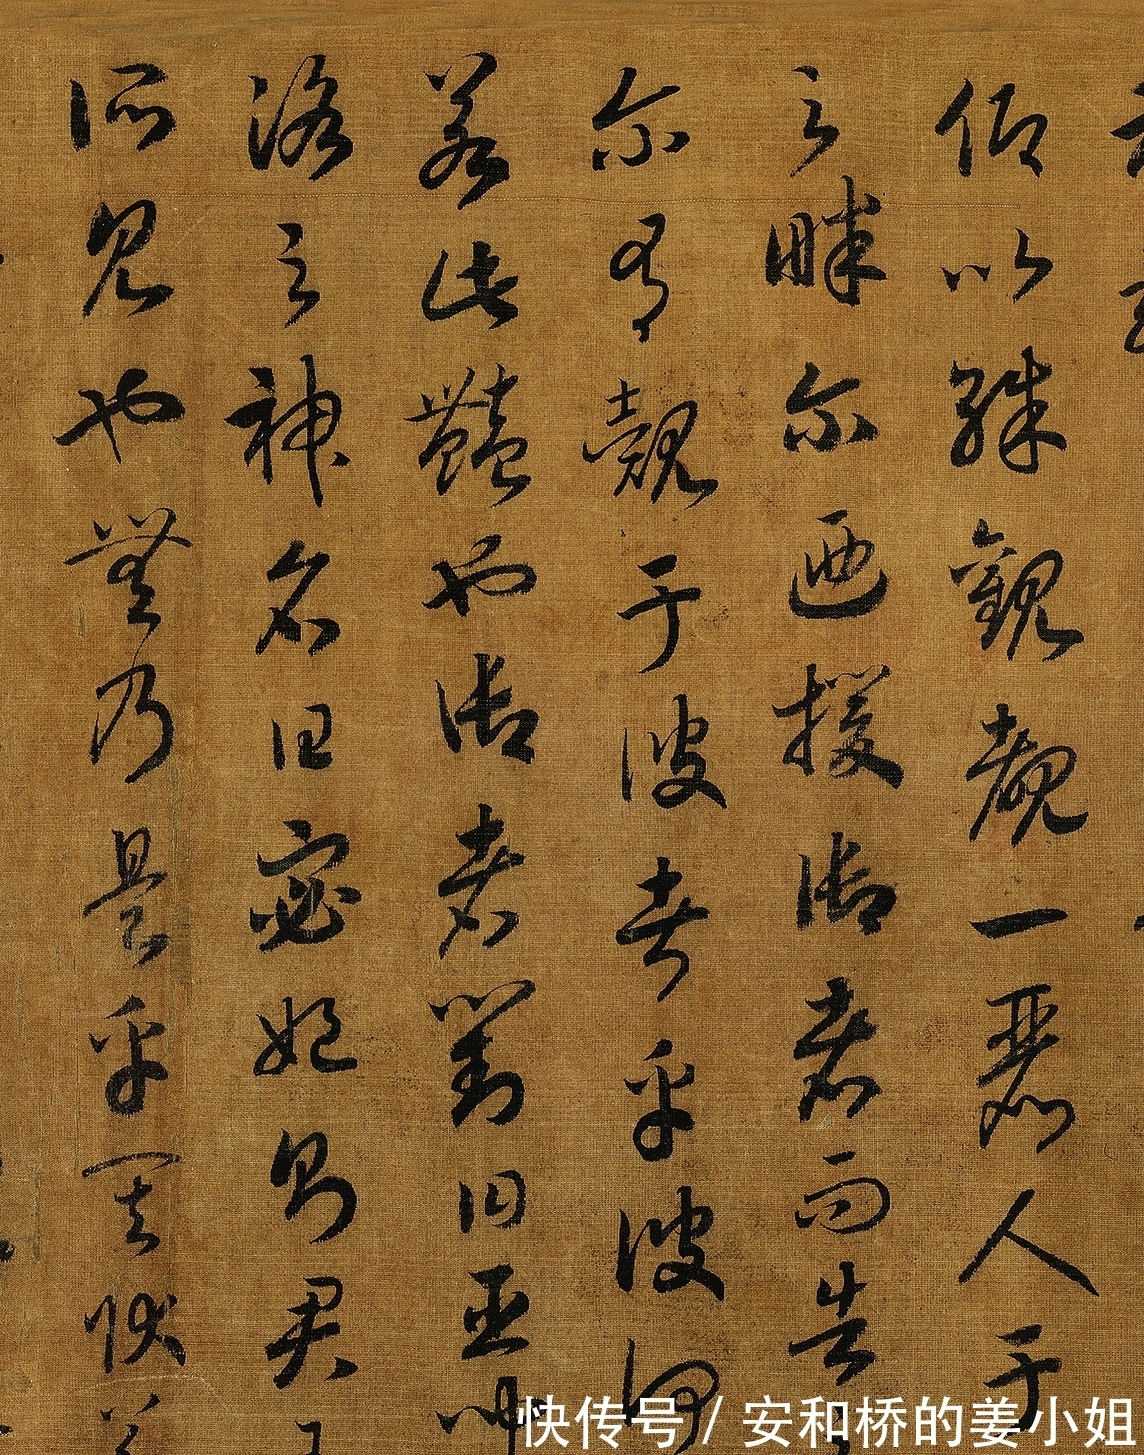 仰以殊觀覩一麗人于
之畔尔迺援御者而告
尔有覿于彼者乎彼何
若此豔也御者對曰臣
洛之神名曰宓妃則君
所見也無乃是乎其狀
快传号 / 安和桥的姜小姐